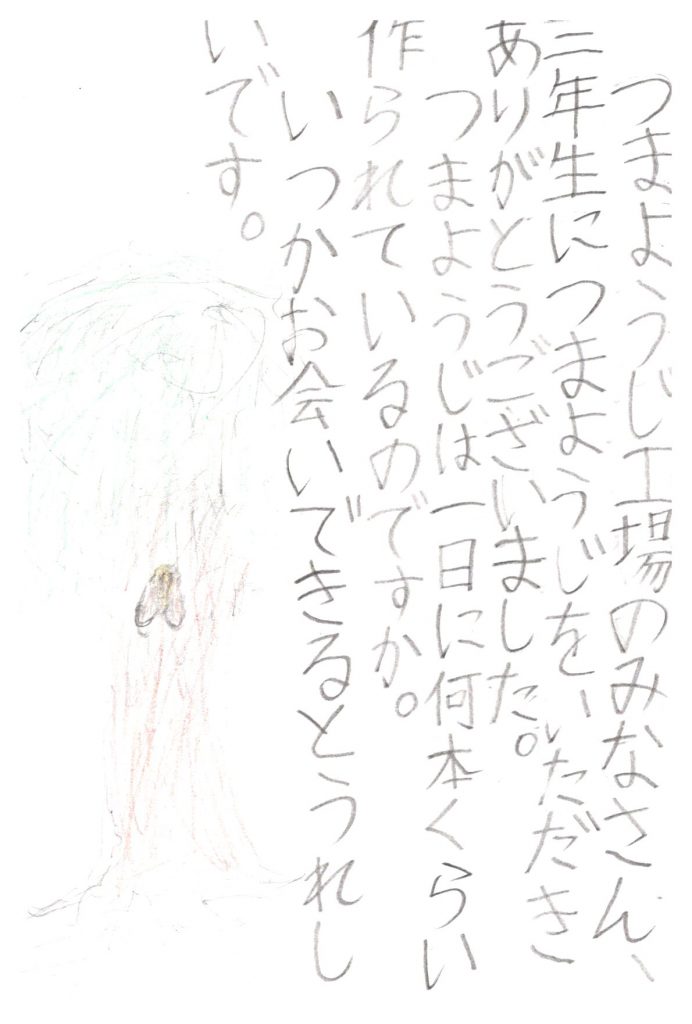 つまようじ工場のみなさん、
三年生につまようじを、いただき
ありがとうございました。
つまようじは一日に何本くらい
作られているのですか。
いつかお会いできるとうれし
いです。